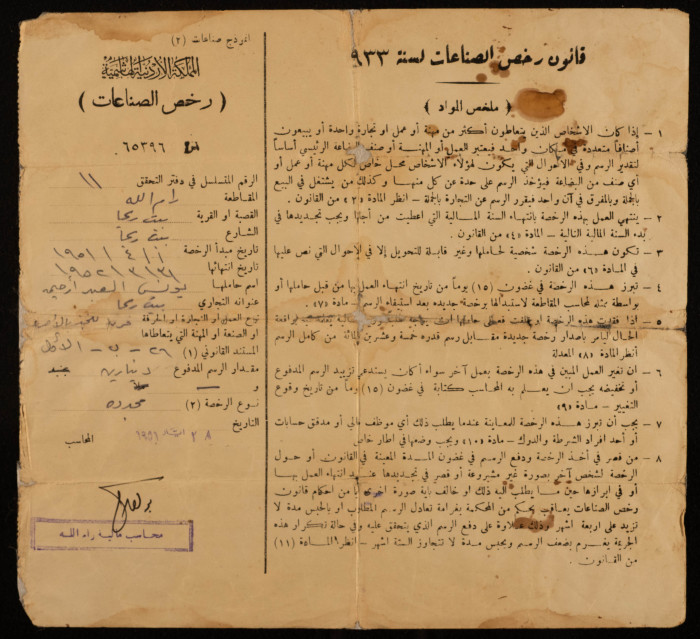 قانون رخص الصناعات لسنة ٩٣٣
﴿ ملخص المواد ﴾
١ – إذا كان الأشخاص الذين يتعاطون أكثر من مهنة أو عمل او تجارة واحدة أو يبيعون
أصنافاً متعددة في مكان واحد فيعتبر العمل أو المهنة أو صنف البضاعة الرئيسي أساساً
لتقدير الرسم وفي الاحوال التي يكون لهؤلاء الأشخاص محل خاص لكل مهنة أو عمل أو
أي صنف من البضاعة فيؤخذ الرسم على حدة عن كل منها وكذلك من يشتغل في البيع
بالجملة وبالمفرق في آن واحد فيقرر الرسم عن التجارة بالجملة – انظر المادة «٣» من القانون.
٢ – ينتهي العمل بهذه الرخصة بانتهاء السنة المالية التي اعطيت من أجلها ويجب تجديدها في
بدء السنة المالية التالية – مادة «٤» من القانون.
٣ – تكون هذه الرخصة شخصية لحاملها وغير قابلة للتحويل إلا في الاحوال التي نص عليها
في المادة «٦» من القانون.
٤ – تبرز هذه الرخصة في غضون (١٥) يوماً من تاريخ انتهاء العمل بها من قبل حاملها أو
بواسطة بمحاسب المقاطعة لاستبدالها برخصة جديدة بعد استيفاء الرسم – مادة «٧».
٥ – إذا فقدت هذه الرخصة او تلفت فعلى حاملها ان
الحال ليأمر باصدار رخصة جديدة مقابل رسم قدره خمسة وعشرين بالمائة من كامل الرسم
أنظر المادة «٨» المعدلة
٦ – ان تغير العمل المبين في هذه الرخصة بعمل آخر سواء أكان يستدعي تزييد الرسم المدفوع
أو تخفيضه يجب ان يعلم به المحاسب كتابة في غضون (١٥) يوماً من تاريخ وقوع
التغيير – مادة «٩»
٧ – يجب أن تبرز هذه الرخصة للمعاينة عندما يطلب ذلك أي موظف مالي أو مدقق حسابات
أو أحد افراد الشرطة والدرك – مادة «١٠» ويجب وضعها في اطار خاص
٨ – من قصر في أخذ الرخصة ودفع الرسم في غضون المدة المعينة في القانون أو حول
الرخصة لشخص آخر بصورة غير مشروعة أو قصر في تجديدها عند انتهاء العمل بها
أو في ابرازها حين ما يطلب اليه ذلك او خالف باية صورة اخرى أيا من احكام قانون
رخص الصناعات يعاقب بحكم من المحكمة بغرامة تعادل الرسم المطلوب او بالحبس مدة لا
تزيد على اربعة اشهر وذلك علاوة على دفع الرسم الذي يتحقق عليه وفي حالة تكرار هذه
الجريمة يغرم بضعف الرسم وبحبس مدة لا تتجاوز الستة اشهر – انظر المادة (١١)
من القانون.
انموذج صناعات (٢)
المملكة الأردنية الهاشمية
( رخص الصناعات )
٦٥٣٩٦
الرقم المتسلسل في دفتر التحقق ١١
المقاطعة رام الله
القصبة او القرية بيت ريما
الشارع بيت ريما
تاريخ مبدأ الرخصة ١/٤/١٩٥١
تاريخ انتهائها ٣١/٣/١٩٥٢
اسم حاملها يونس
عنوانه التجاري بيت ريما
نوع العمل أو التجارة او الحرفة
او الصنعة او المهنة التي يتعاطاها
المستند القانوني (١) ٢٩ – ب – الاول
مقدار الرسم المدفوع دينارين
و
نوع الرخصة (٢) مجددة
التاريخ ٢٨ ١٩٥١
المحاسب
محاسب مالية رام الله